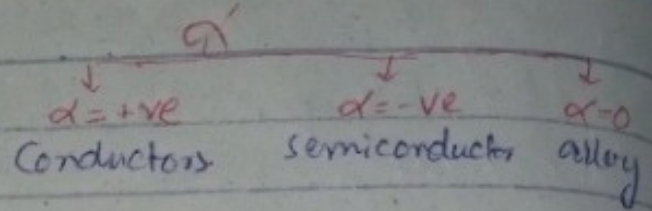 α
α=+ve α=-ve α=0
Conductors semiconductor alloy